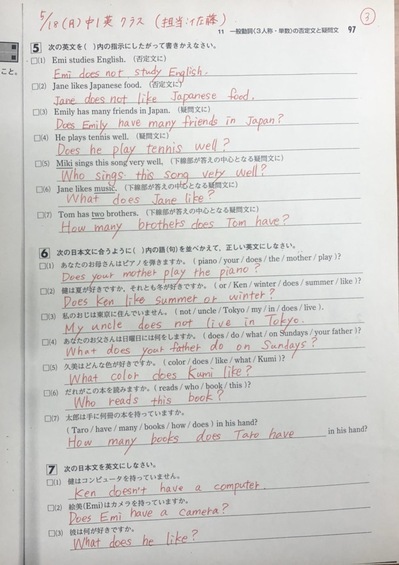 5/18 (月) 中1英クラス (担当:佐藤)
③
11 一般動詞〈3人称・単数〉の否定文と疑問文 97
こと。
5 次の英文を( )内の指示にしたがって書きかえなさい。
□(1) Emi studies English. (否定文に)
Emi does not study English.
□(2) Jane likes Japanese food. (否定文に)
Jane does not like Japanese food.
□(3) Emily has many friends in Japan. (疑問文に)
Does Emily have many friends in Japan?
□(4) He plays tennis well. (疑問文に)
Does he play tennis well?
□(5) Miki sings this song very well. (下線部が答えの中心となる疑問文に)
Who sings this song very well?
□(6) Jane likes music. (下線部が答えの中心となる疑問文に)
What does Jane like?
□(7) Tom has two brothers. (下線部が答えの中心となる疑問文に)
How many brothers does Tom have?
6 次の日本文に合うように( )内の語(句)を並べかえて、正しい英文にしなさい。
□(1) あなたのお母さんはピアノを弾きますか。 ( piano / your / does / the / mother / play )?
Does your mother play the piano?
□(2) 健は夏が好きですか、それとも冬が好きですか。 ( or / Ken / winter / does / summer / like )?
Does Ken like summer or winter?
□(3) 私のおじは東京に住んでいません。 ( not / uncle / Tokyo / my / in / does / live ).
My uncle does not live in Tokyo.
□(4) あなたのお父さんは日曜日には何をしますか。 ( does / do / what / on Sundays / your father )?
What does your father do on Sundays?
□(5) 久美はどんな色が好きですか。 ( color / does / like / what / Kumi )?
What color does Kumi like?
□(6) だれがこの本を読みますか。 ( reads / who / book / this )?
Who reads this book?
□(7) 太郎は手に何冊の本を持っていますか。
( Taro / have / many / books / how / does ) in his hand?
How many books does Taro have in his hand?
7 次の日本文を英文にしなさい。
□(1) 健はコンピュータを持っていません。
Ken doesn't have a computer.
□(2) 絵美(Emi)はカメラを持っていますか。
Does Emi have a camera?
□(3) 彼は何が好きですか。
What does he like?